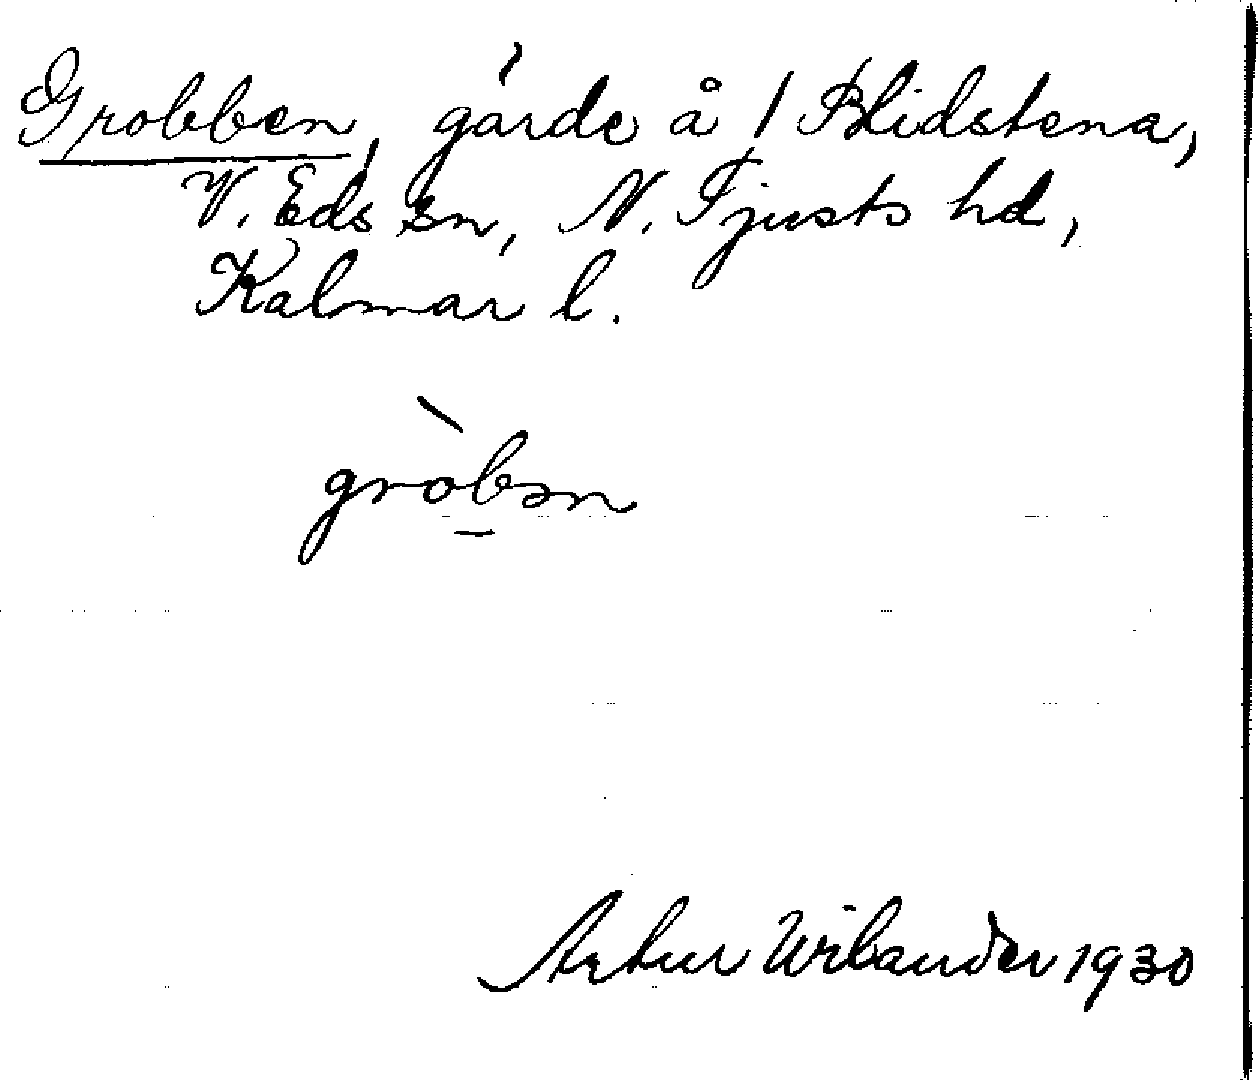 Grobben, gärde å / Blidstena,
V. Eds sn, N. Tjusts hd,
Kalmar l.
gròbən
Artur Wilander 1930